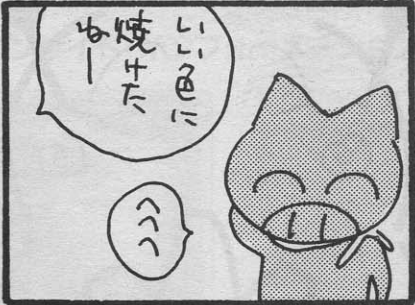 いい色に
焼けた
ねー
へへへ